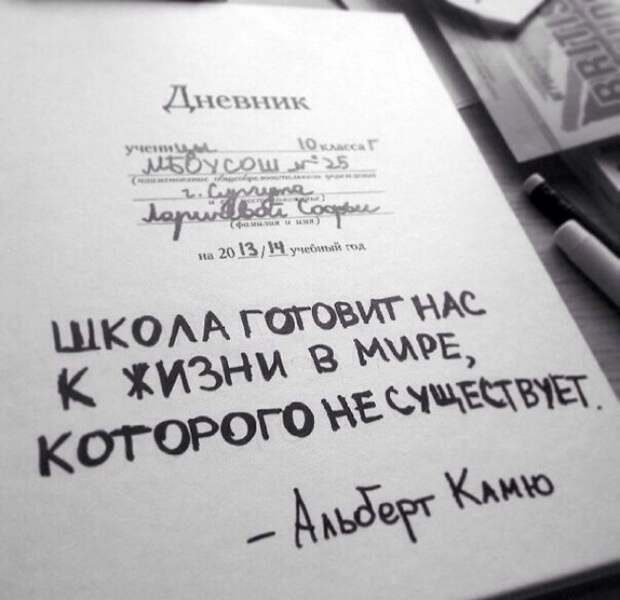 BRITIS
Дневник
ученицы 10 класса Г
МБОУСОШ №25
(наименование общеобразовательного учреждения
г. Сургута
Софьи
(фамилия и имя)
на 2013/14 учебный год
ШКОЛА ГОТОВИТ НАС
К ЖИЗНИ В МИРЕ,
КОТОРОГО НЕ СУЩЕСТВУЕТ.
- Альберт Камю